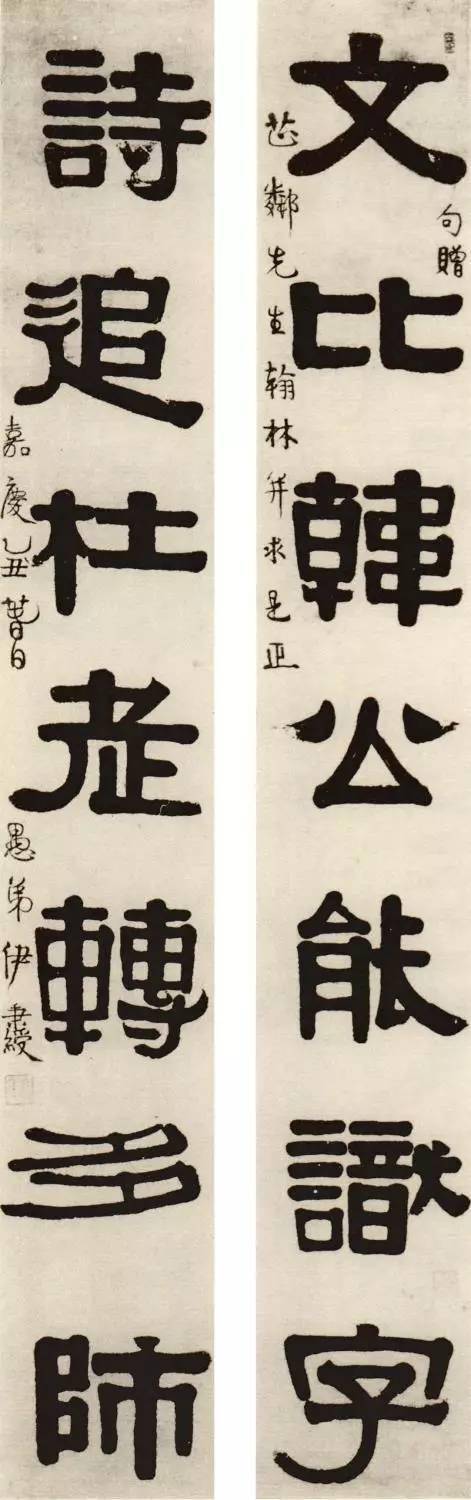 文比韓公能識字
句贈
芷鄰先生翰林并求是正
詩追杜老轉多師
嘉慶乙丑昔日
愚弟伊秉綬